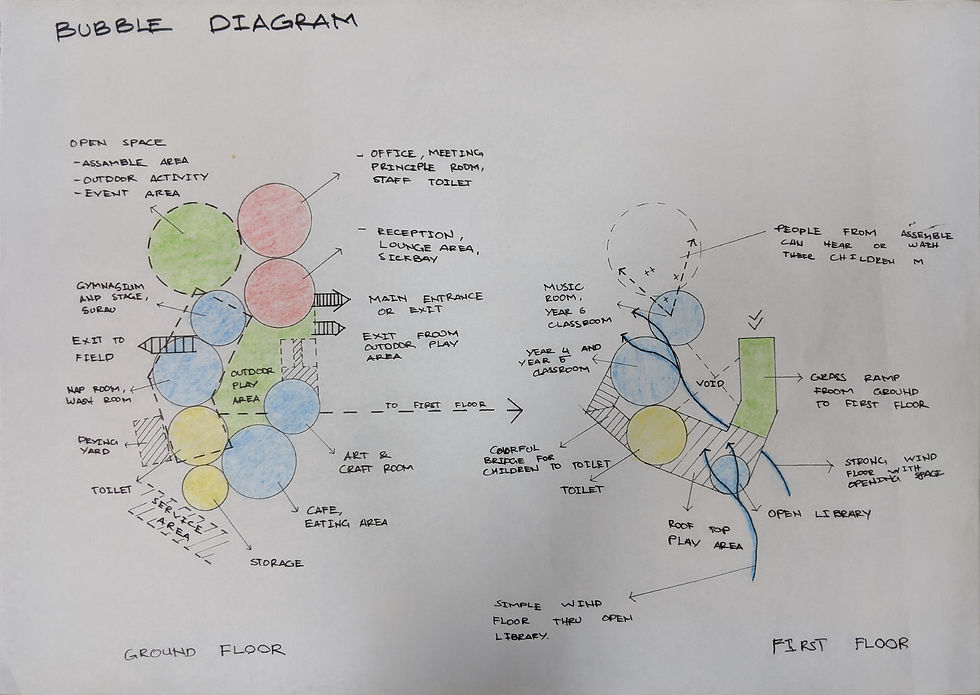 BUBBLE DIAGRAM
OPEN SPACE
-ASSAMBLE AREA
-OUTDOOR ACTIVITY
-EVENT AREA
- OFFICE, MEETING
PRINCIPLE ROOM,
STAFF TOILET
- RECEPTION,
LOUNGE AREA,
SICKBAY
GYMNASIUM
AND STAGE,
SURAU
MAIN ENTRANCE
OR EXIT
EXIT TO
FIELD
EXIT FROOM
OUTDOOR PLAY
AREA
OUTDOOR
PLAY
AREA
NAP ROOM,
WASH ROOM
TO FIRST FLOOR
DRYING
YARD
ART &
CRAFT ROOM
TOILET
SERVICE
AREA
CAFE,
EATING AREA
STORAGE
GROUND FLOOR
PEOPLE FROM ASSEMBLE
CAN HEAR OR WATH
THEIR CHILDREN M
MUSIC
ROOM,
YEAR 6
CLASSROOM
YEAR 4 AND
YEAR 5
CLASSROOM
VOID
GRASS RAMP
FROOM GROUND
TO FIRST FLOOR
COLORFUL
BRIDGE FOR
CHILDREN TO TOILET
TOILET
STRONG WIND
FLOOR WITH
OPENING SPACE
OPEN LIBRARY
ROOF TOP
PLAY AREA
SIMPLE WIND
FLOOR THRU OPEN
LIBRARY.
FIRST FLOOR